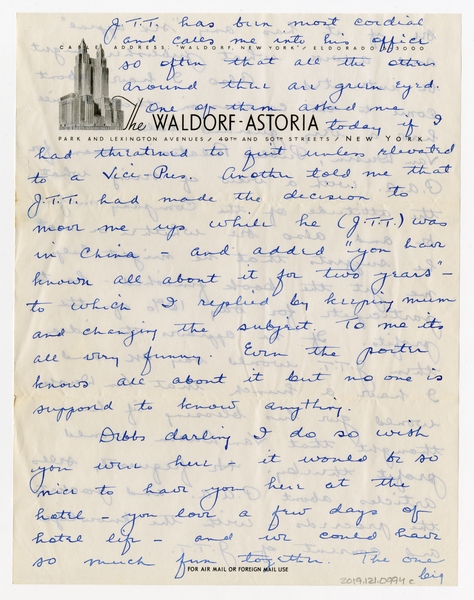 J.T.T. has been most cordial
and calls me into his office
CABLE ADDRESS: "WALDORF, NEW YORK" / ELDORADO 5-3000
so often that all the others
around there are green eyed.
One of them asked me
The WALDORF-ASTORIA
today if I
PARK AND LEXINGTON AVENUES / 49TH AND 50TH STREETS / NEW YORK
had threatened to quit unless elevated
to a Vice-Pres. Another told me that
J.T.T. had made the decision to
move me up while he (J.T.T.) was
in China - and added "you have
known all about it for two years" -
to which I replied by keeping mum
and changing the subject. To me its
all very funny. Even the porter
knows all about it but no one is
supposed to know anything.
Dibbs darling I do so wish
you were here - it would be so
nice to have you here at the
hotel - you love a few days of
hotel life - and we could have
so much fun together. The one
big
FOR AIR MAIL OR FOREIGN MAIL USE
2019.121.0994 c